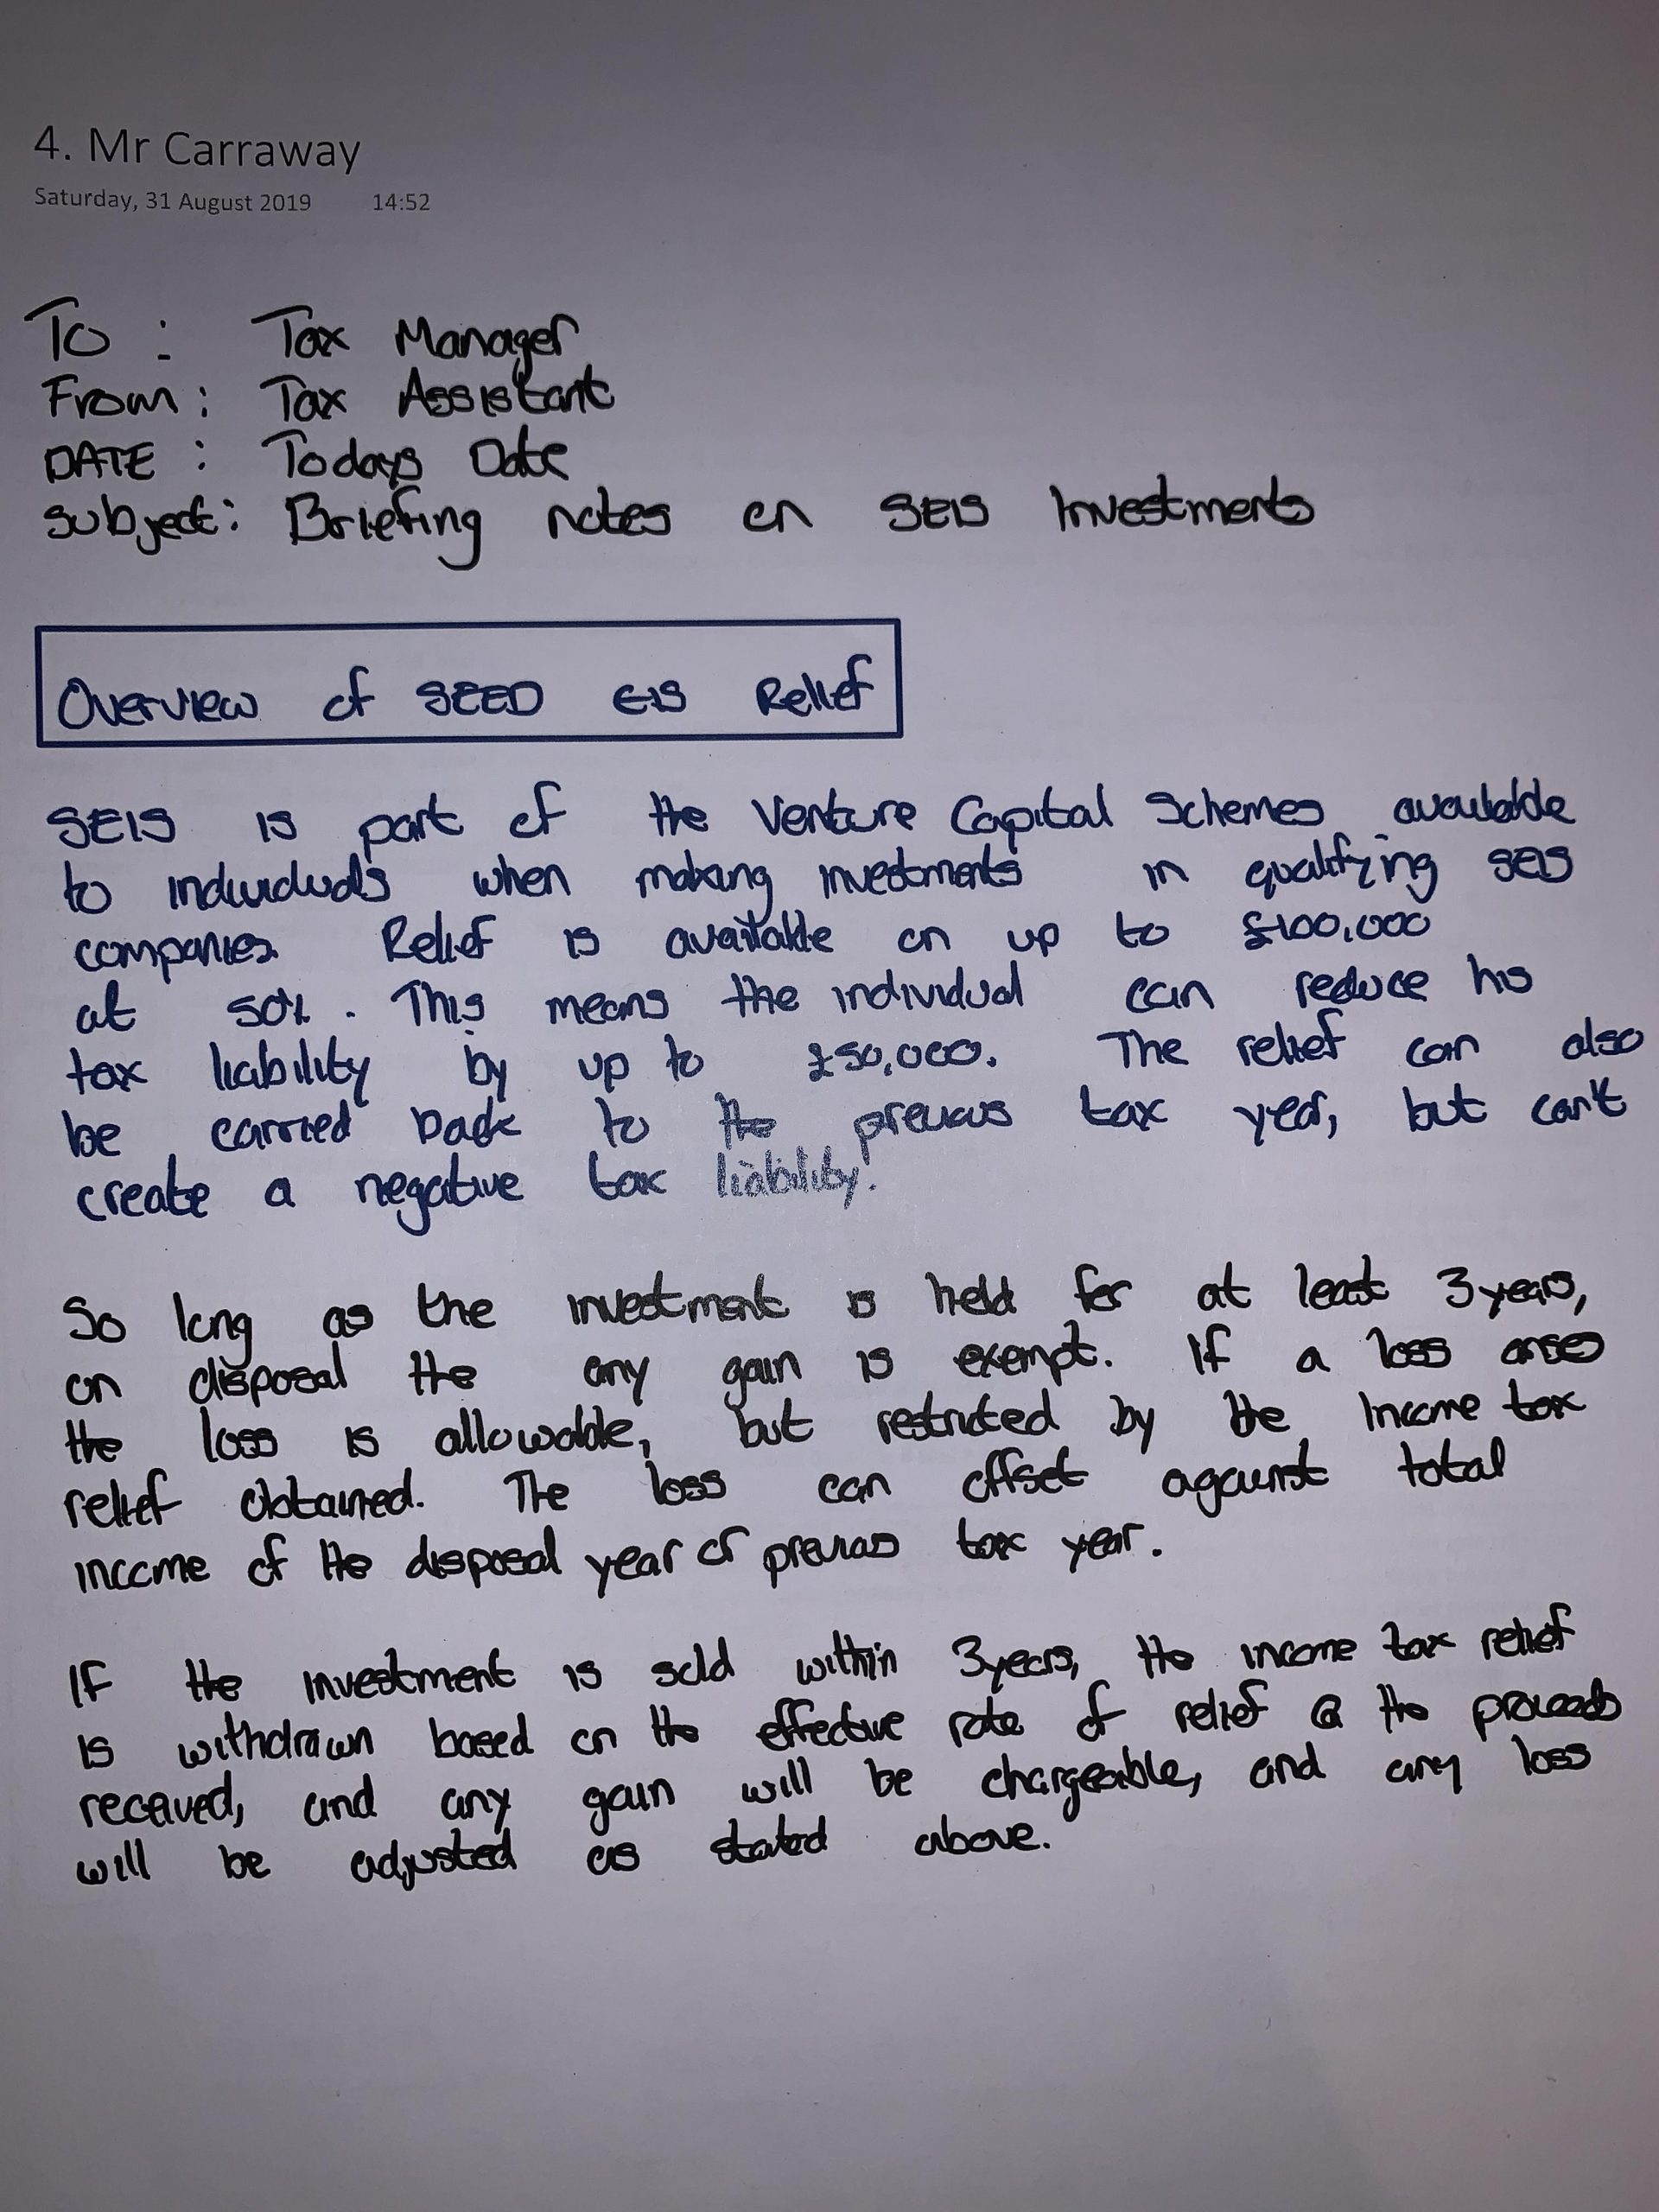 4. Mr Carraway
Saturday, 31 August 2019 14:52
To : Tax Manager
From : Tax Assistant
DATE : Todays Date
Subject: Briefing notes on SEIS Investments
Overview of SEED EIS Relief
SEIS is part of the Venture Capital Schemes available
to individuals when making investments in qualifying SEIS
companies. Relief is available on up to £100,000
at 50%. This means the individual can reduce his
tax liability by up to £50,000. The relief can also
be carried back to the previous tax year, but can't
create a negative tax liability!
So long as the investment is held for at least 3 years,
on disposal the any gain is exempt. If a loss arises
the loss is allowable, but restricted by the Income tax
relief obtained. The loss can offset against total
income of the disposal year or previous tax year.
If the investment is sold within 3 years, the income tax relief
is withdrawn based on the effective rate of relief @ the proceeds
received, and any gain will be chargeable, and any loss
will be adjusted as stated above.